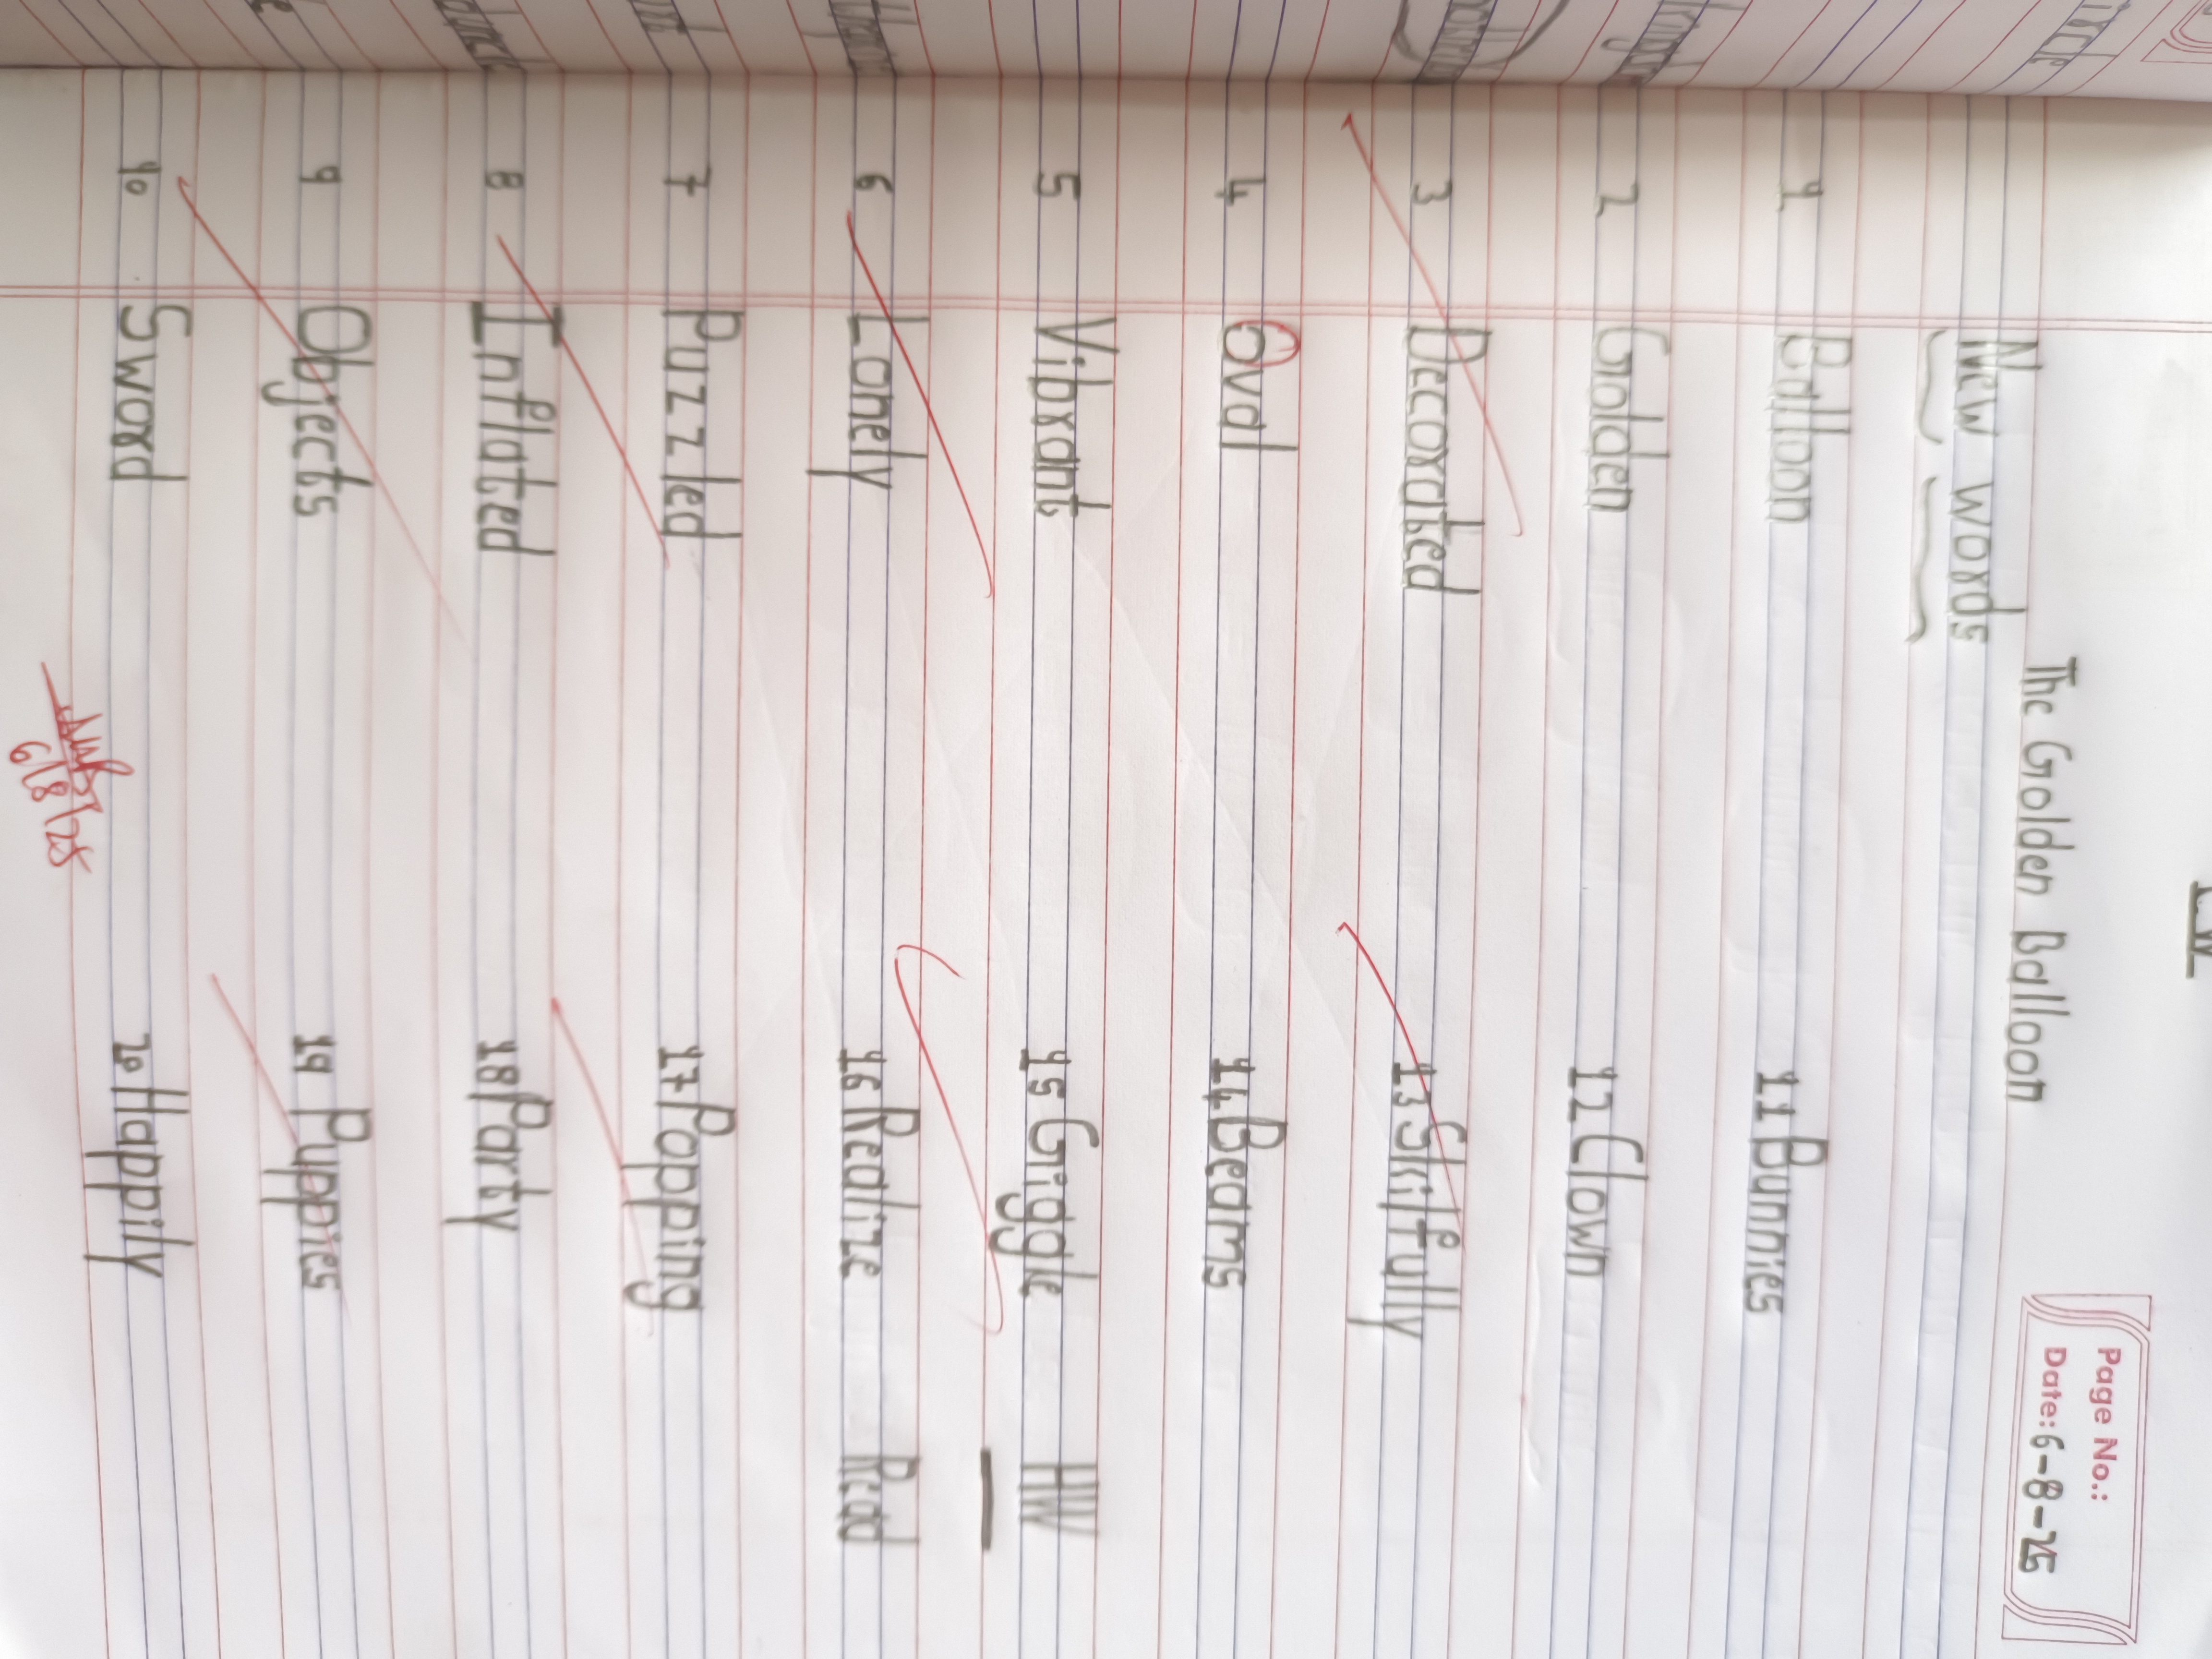 Page No.:
Date: 6-8-25
The Golden Balloon
New words
1 Balloon 11 Bunnies
2 Golden 12 Clown
3 Decorated 13 Skilfully
4 Oval 14 Beams
5 Vibrant 15 Giggle HW
6 Lonely 16 Realize Read
7 Puzzled 17 Popping
8 Inflated 18 Party
9 Objects 19 Puppies
10 Sword 20 Happily
6/8/25